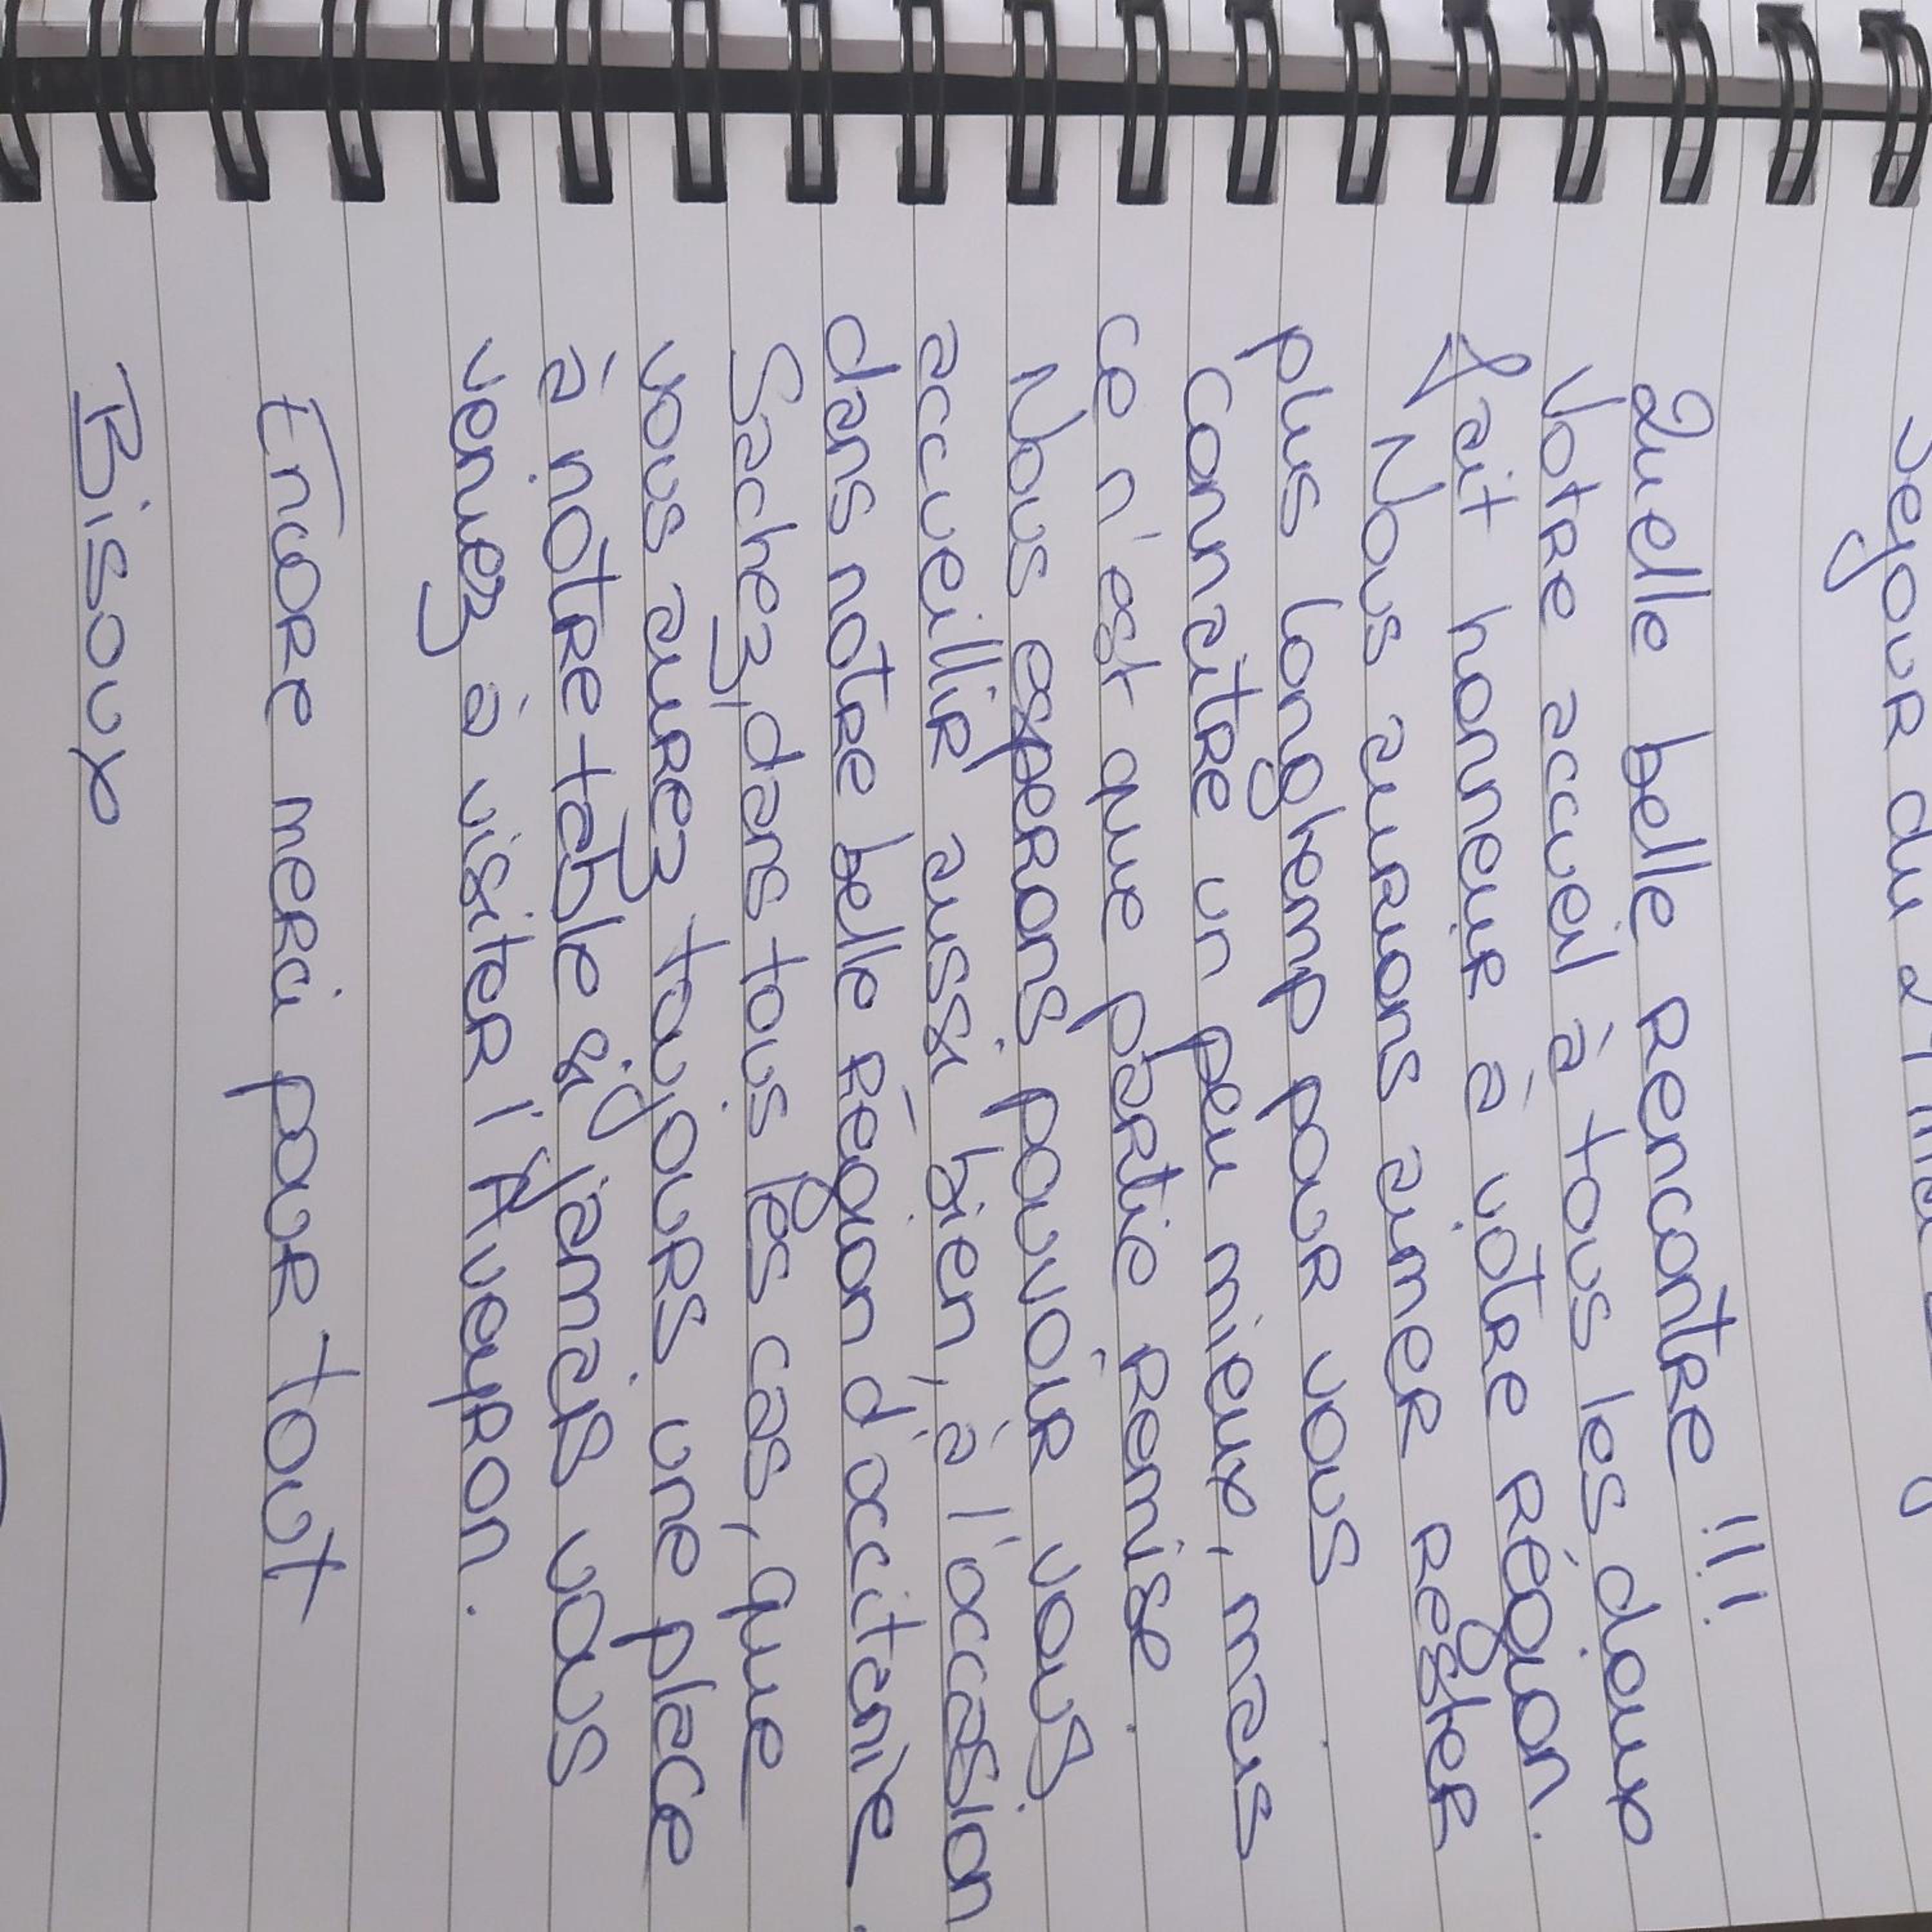 séjour du
Quelle belle rencontre !!!
Votre accueil à tous les deux
fait honneur à votre région.
Nous aurions aimer rester
plus longtemp pour vous
connaitre un peu mieux, mais
ce n'est que partie remise.
Nous esperons pouvoir vous
accueillir aussi bien, à l'occassion
dans notre belle région d'occitanie.
Sachez, dans tous les cas, que
vous aurez toujours une place
à notre table si jamais vous
venez à visiter l'Aveyron.
Encore merci pour tout
Bisoux